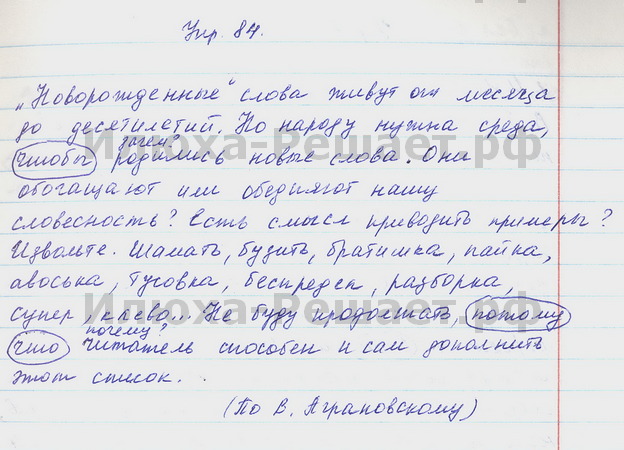 Упр. 84.
„Новорожденные“ слова живут от месяца
до десятилетий. Но народу нужна среда,
зачем?
чтобы родились новые слова. Они
обогащают или обедняют нашу
словесность? Есть смысл приводить примеры?
Извольте. Шамать, бузить, братишка, пайка,
авоська, тусовка, беспредел, разборка,
супер, клево... Не буду продолжать, потому
почему?
что читатель способен и сам дополнить
этот список.
(По В. Аграновскому)
Илюха-Решает.рф
Илюха-Решает.рф
Илюха-Решает.рф